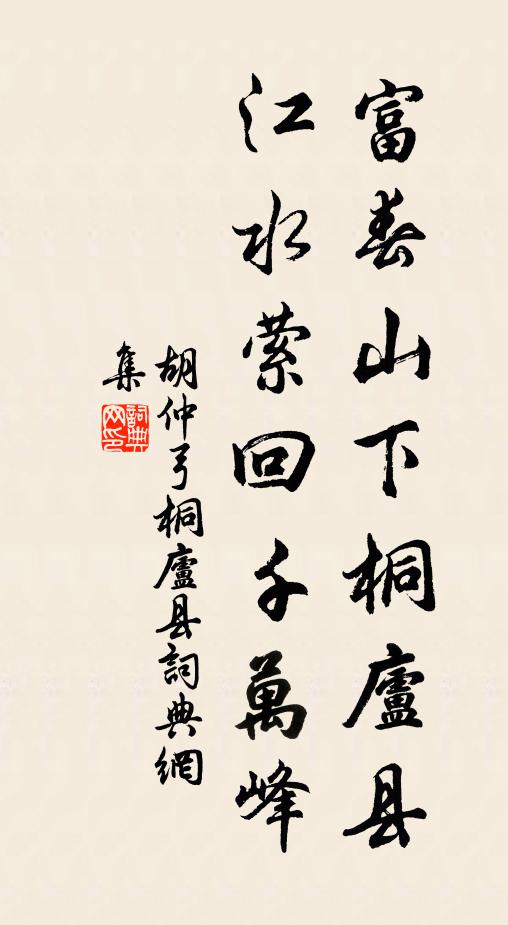 富春山下桐廬县
江水萦回千萬峰
胡仲弓桐廬县詞典網
集
詞典
网印